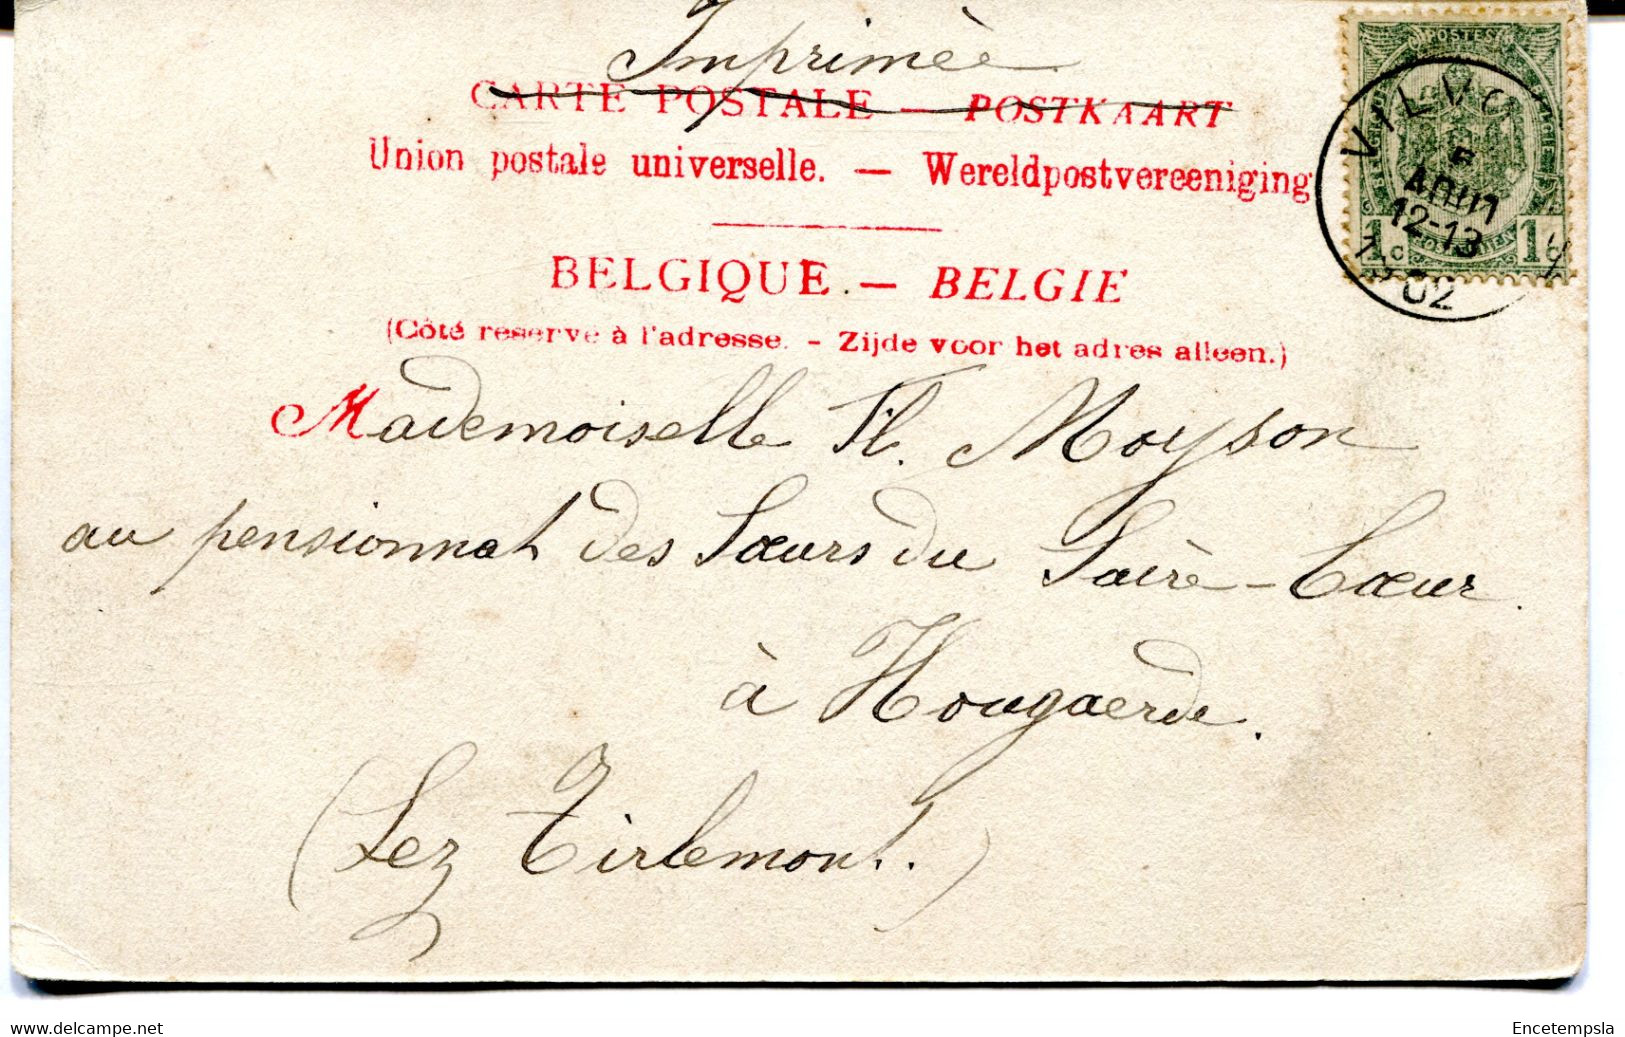 Imprimée
CARTE POSTALE — POSTKAART
Union postale universelle. — Wereldpostvereeniging
BELGIQUE. — BELGIE
(Côté reservé à l'adresse. - Zijde voor het adres alleen.)
Mademoiselle Fl. Moyson
au pensionnat des Sœurs du Sacré-Cœur
à Hougaerde.
(Lez Tirlemont.)
POSTES
1c 1c
VILVO
5
AOUT
12-13
1902
delcampe.net
Encetempsla